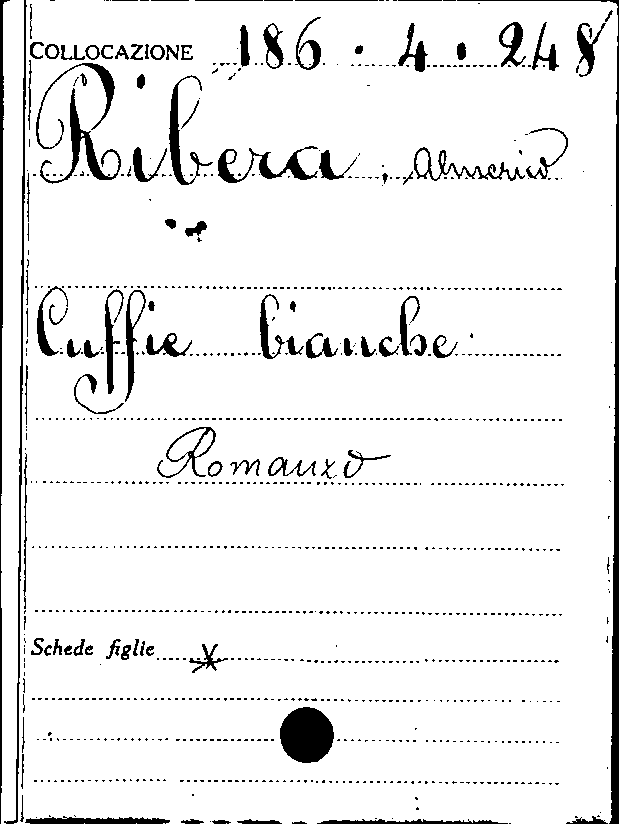 COLLOCAZIONE 186.4.248
Ribera, Almerico
Cuffie bianche.
Romanzo
Schede figlie